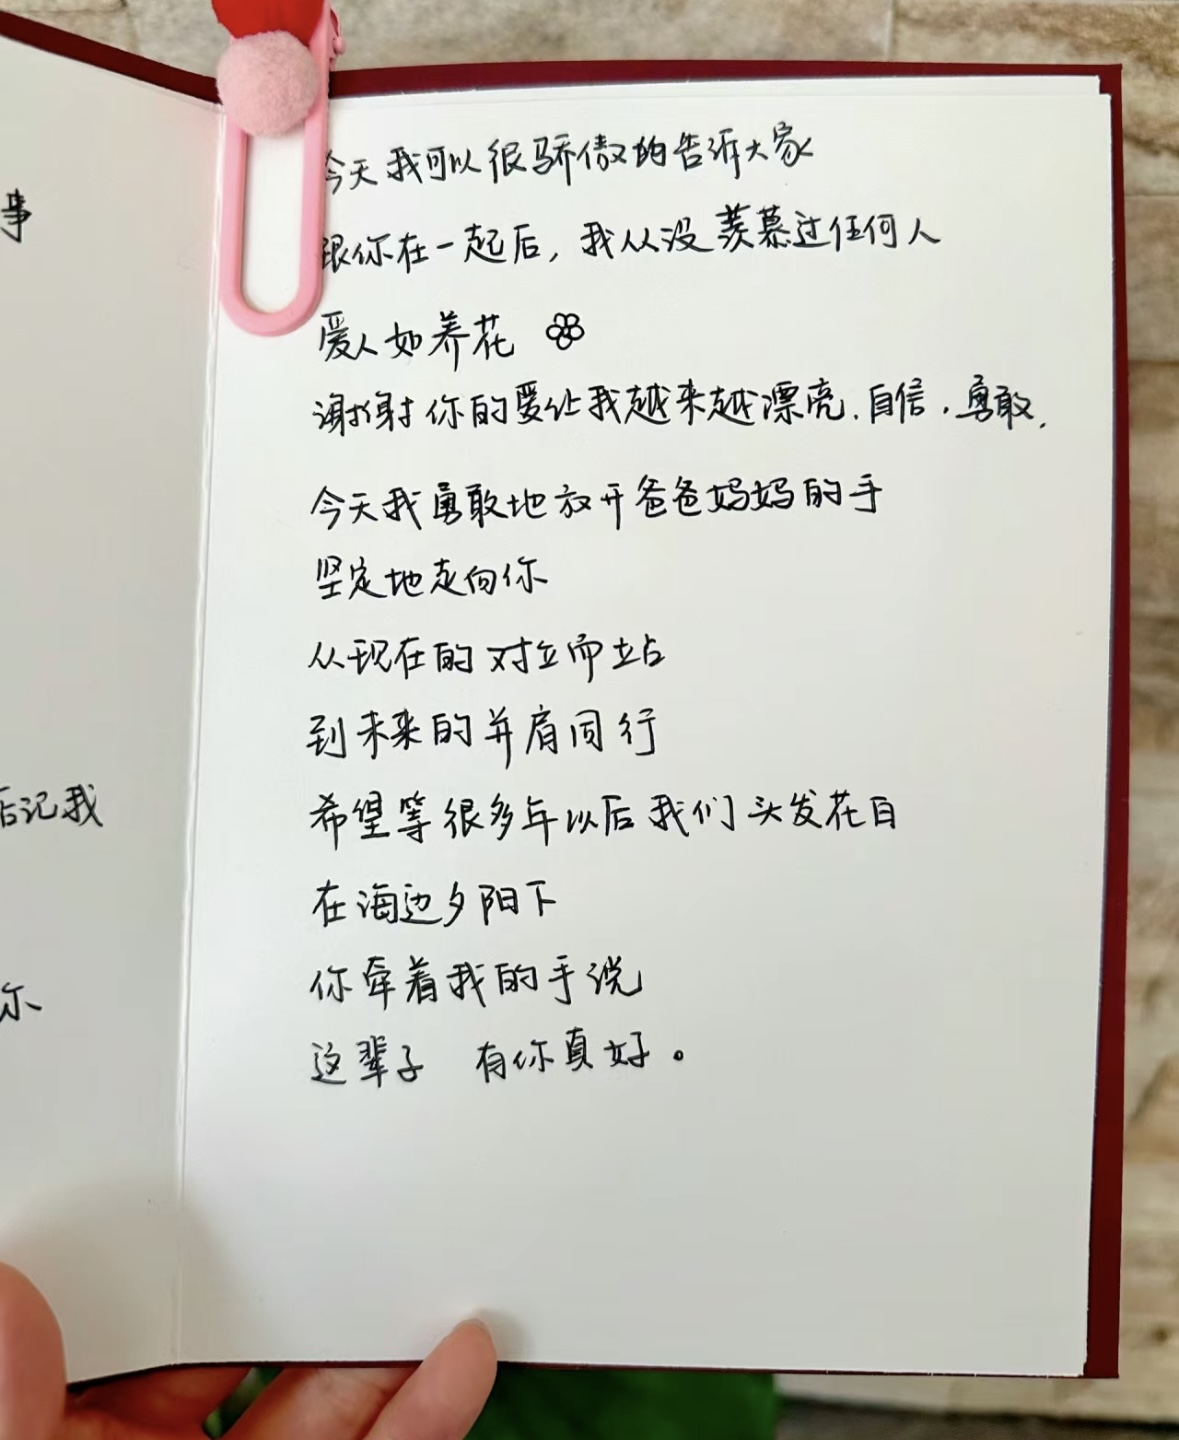 事
后记我
你
今天我可以很骄傲的告诉大家
跟你在一起后，我从没羡慕过任何人
爱人如养花
谢谢你的爱让我越来越漂亮、自信、勇敢，
今天我勇敢地放开爸爸妈妈的手
坚定地走向你
从现在的对立而站
到未来的并肩同行
希望等很多年以后我们头发花白
在海边夕阳下
你牵着我的手说
这辈子 有你真好。